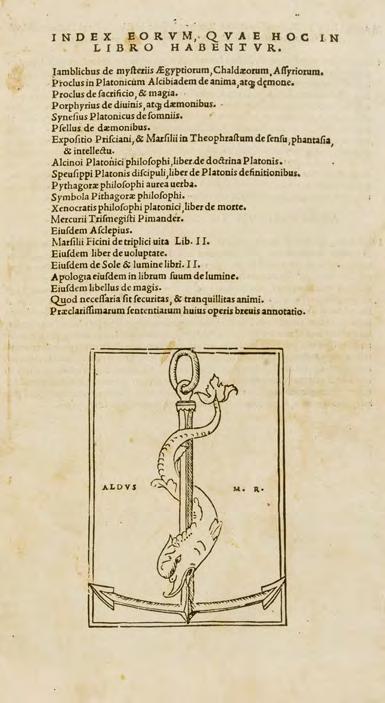 INDEX EORVM, QVAE HOC IN
LIBRO HABENTVR.
Iamblichus de mysteriis Ægyptiorum, Chaldæorum, Assyriorum.
Proclus in Platonicum Alcibiadem de anima, atq; dęmone.
Proclus de sacrificio, & magia.
Porphyrius de diuinis, atq; dæmonibus.
Synesius Platonicus de somniis.
Psellus de dæmonibus.
Expositio Prisciani, & Marsilii in Theophrastum de sensu, phantasia,
& intellectu.
Alcinoi Platonici philosophi, liber de doctrina Platonis.
Speusippi Platonis discipuli, liber de Platonis definitionibus.
Pythagoræ philosophi aurea uerba.
Symbola Pithagoræ philosophi.
Xenocratis philosophi platonici, liber de morte.
Mercurii Trismegisti Pimander.
Eiusdem Asclepius.
Marsilii Ficini de triplici uita Lib. II.
Eiusdem liber de uoluptate.
Eiusdem de Sole & lumine libri. II.
Apologia eiusdem in librum suum de lumine.
Eiusdem libellus de magis.
Quod necessaria sit securitas, & tranquillitas animi.
Præclarissimarum sententiarum huius operis breuis annotatio.
ALDVS M. R.